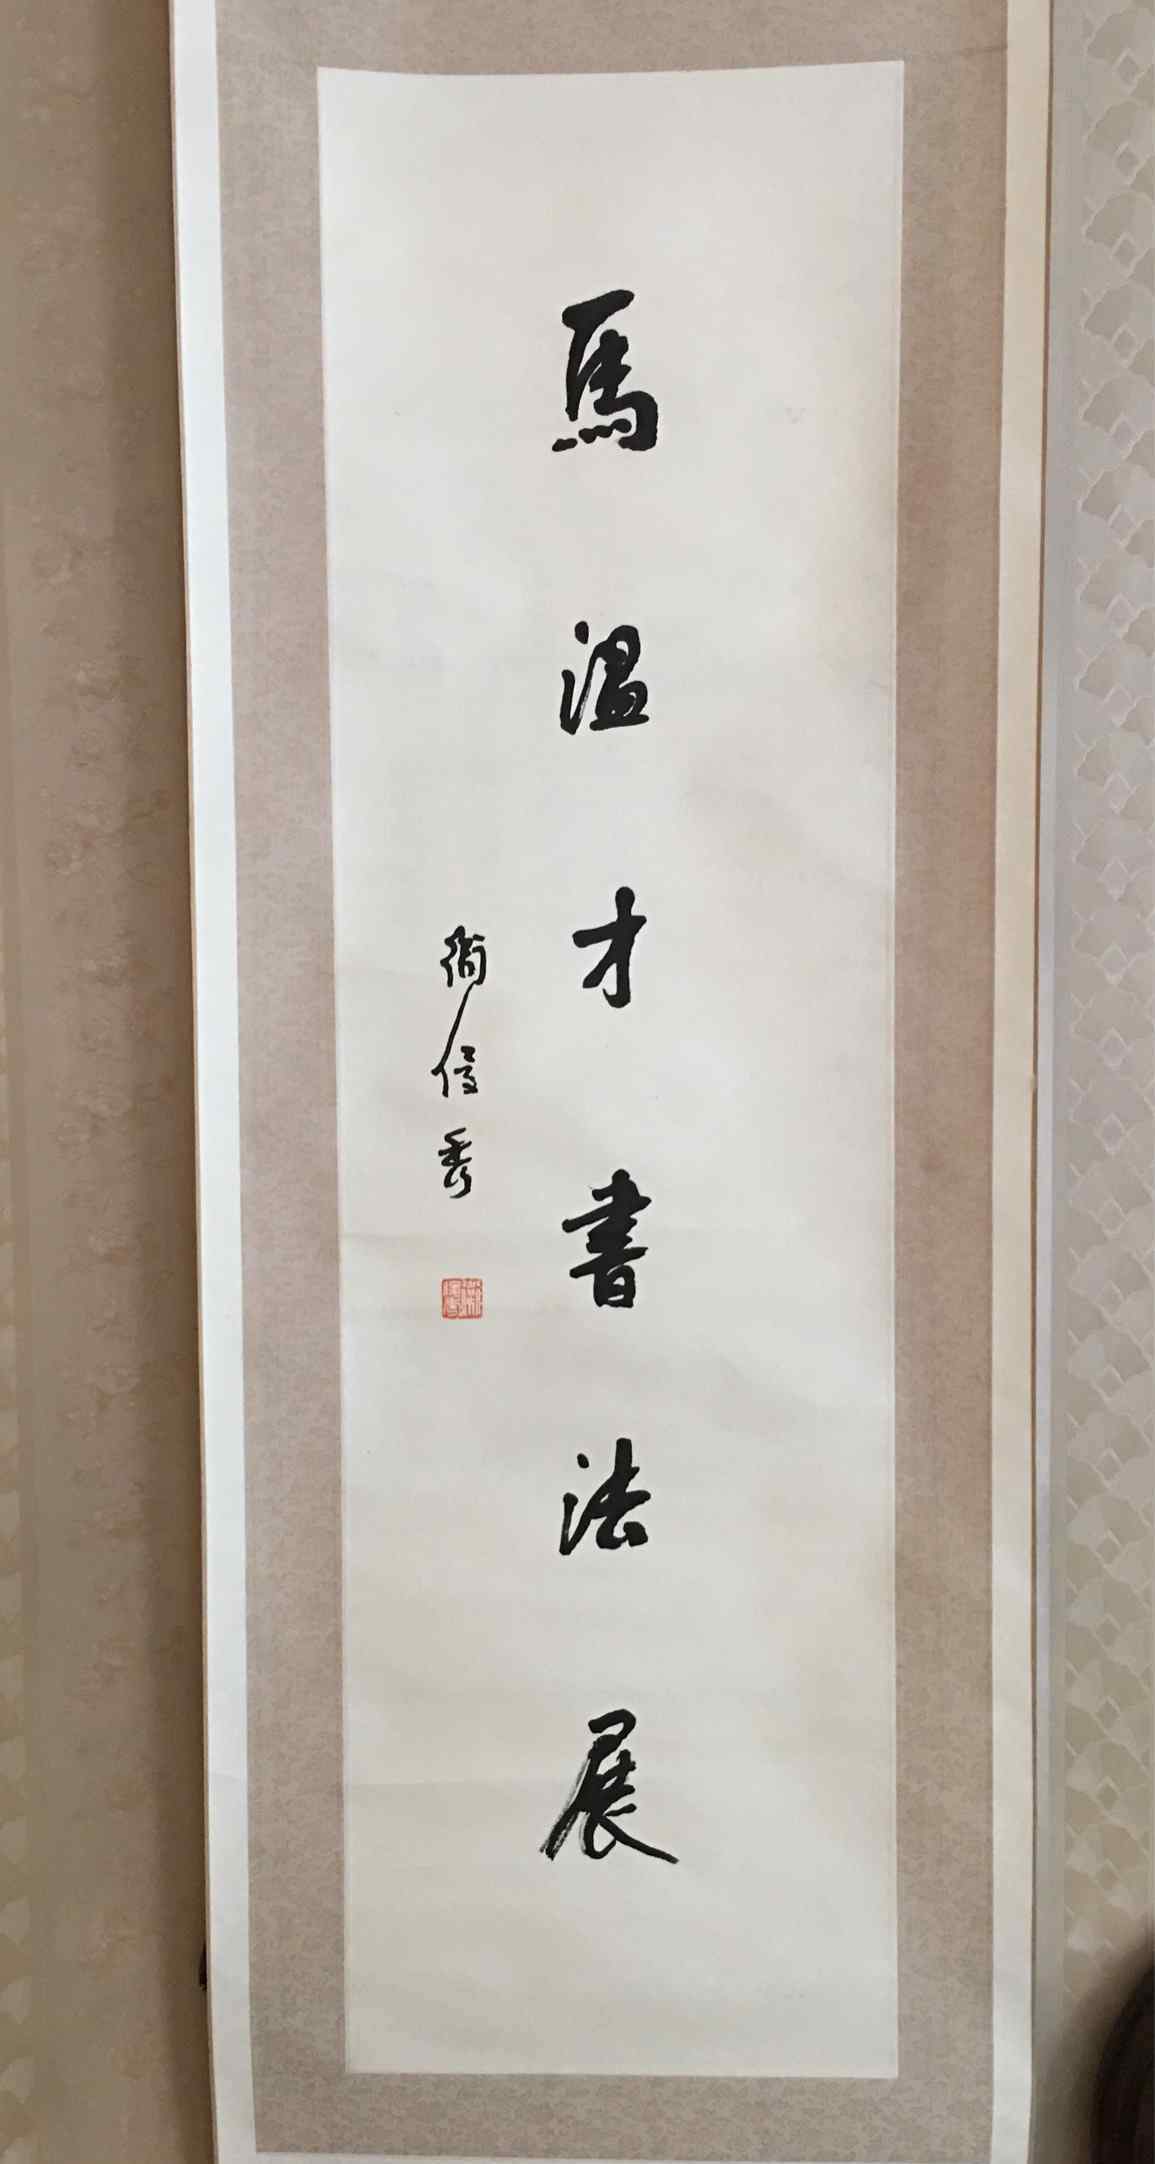 馬温才書法展
衛俊秀